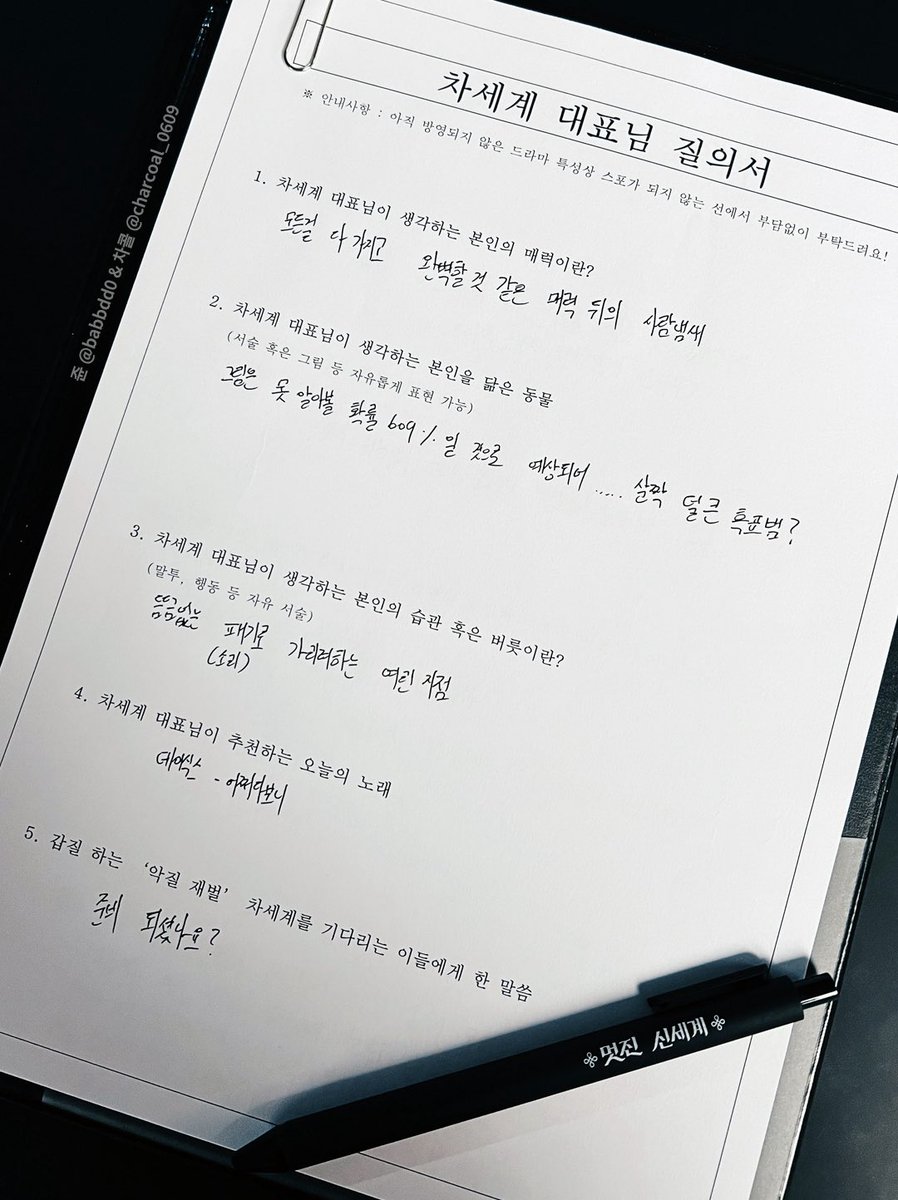 차세계 대표님 질의서
※ 안내사항 : 아직 방영되지 않은 드라마 특성상 스포가 되지 않는 선에서 부담없이 부탁드려요!
1. 차세계 대표님이 생각하는 본인의 매력이란?
모든걸 다 가지고 완벽할 것 같은 매력 뒤의 사람냄새
2. 차세계 대표님이 생각하는 본인을 닮은 동물
(서술 혹은 그림 등 자유롭게 표현 가능)
그림은 못 알아볼 확률 609% 일 것으로 예상되어 ..... 살짝 덜큰 흑표범?
3. 차세계 대표님이 생각하는 본인의 습관 혹은 버릇이란?
(말투, 행동 등 자유 서술)
뜸금없는 패기로 가리려하는 여린 지점
(소리)
4. 차세계 대표님이 추천하는 오늘의 노래
데이식스 - 어쩌다보니
5. 갑질 하는 ‘악질 재벌’ 차세계를 기다리는 이들에게 한 말씀
준비 되셨나요?
멋진 신세계
준 @babbdd0 & 차콜 @charcoal_0609